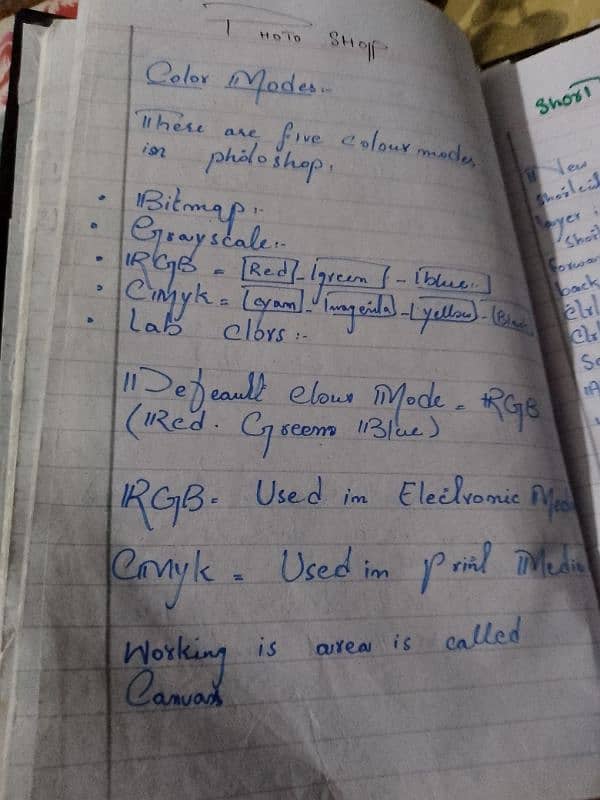 PHOTO SHOP
Color Modes:-
There are five colour modes
in photoshop,
• Bitmap:-
• Grayscale:-
• RGB = [Red]-[green]-[blue:]
• Cmyk = [cyam]-[magenta]-[yellow]-[Black
• Lab Clors :-
Defeault Clour Mode = RGB
(Red. Greem Blue)
RGB = Used in Electronic Media
Cmyk = Used in print Media
Working is area is called
Canvas
Short
New
layer
back
Ctrl